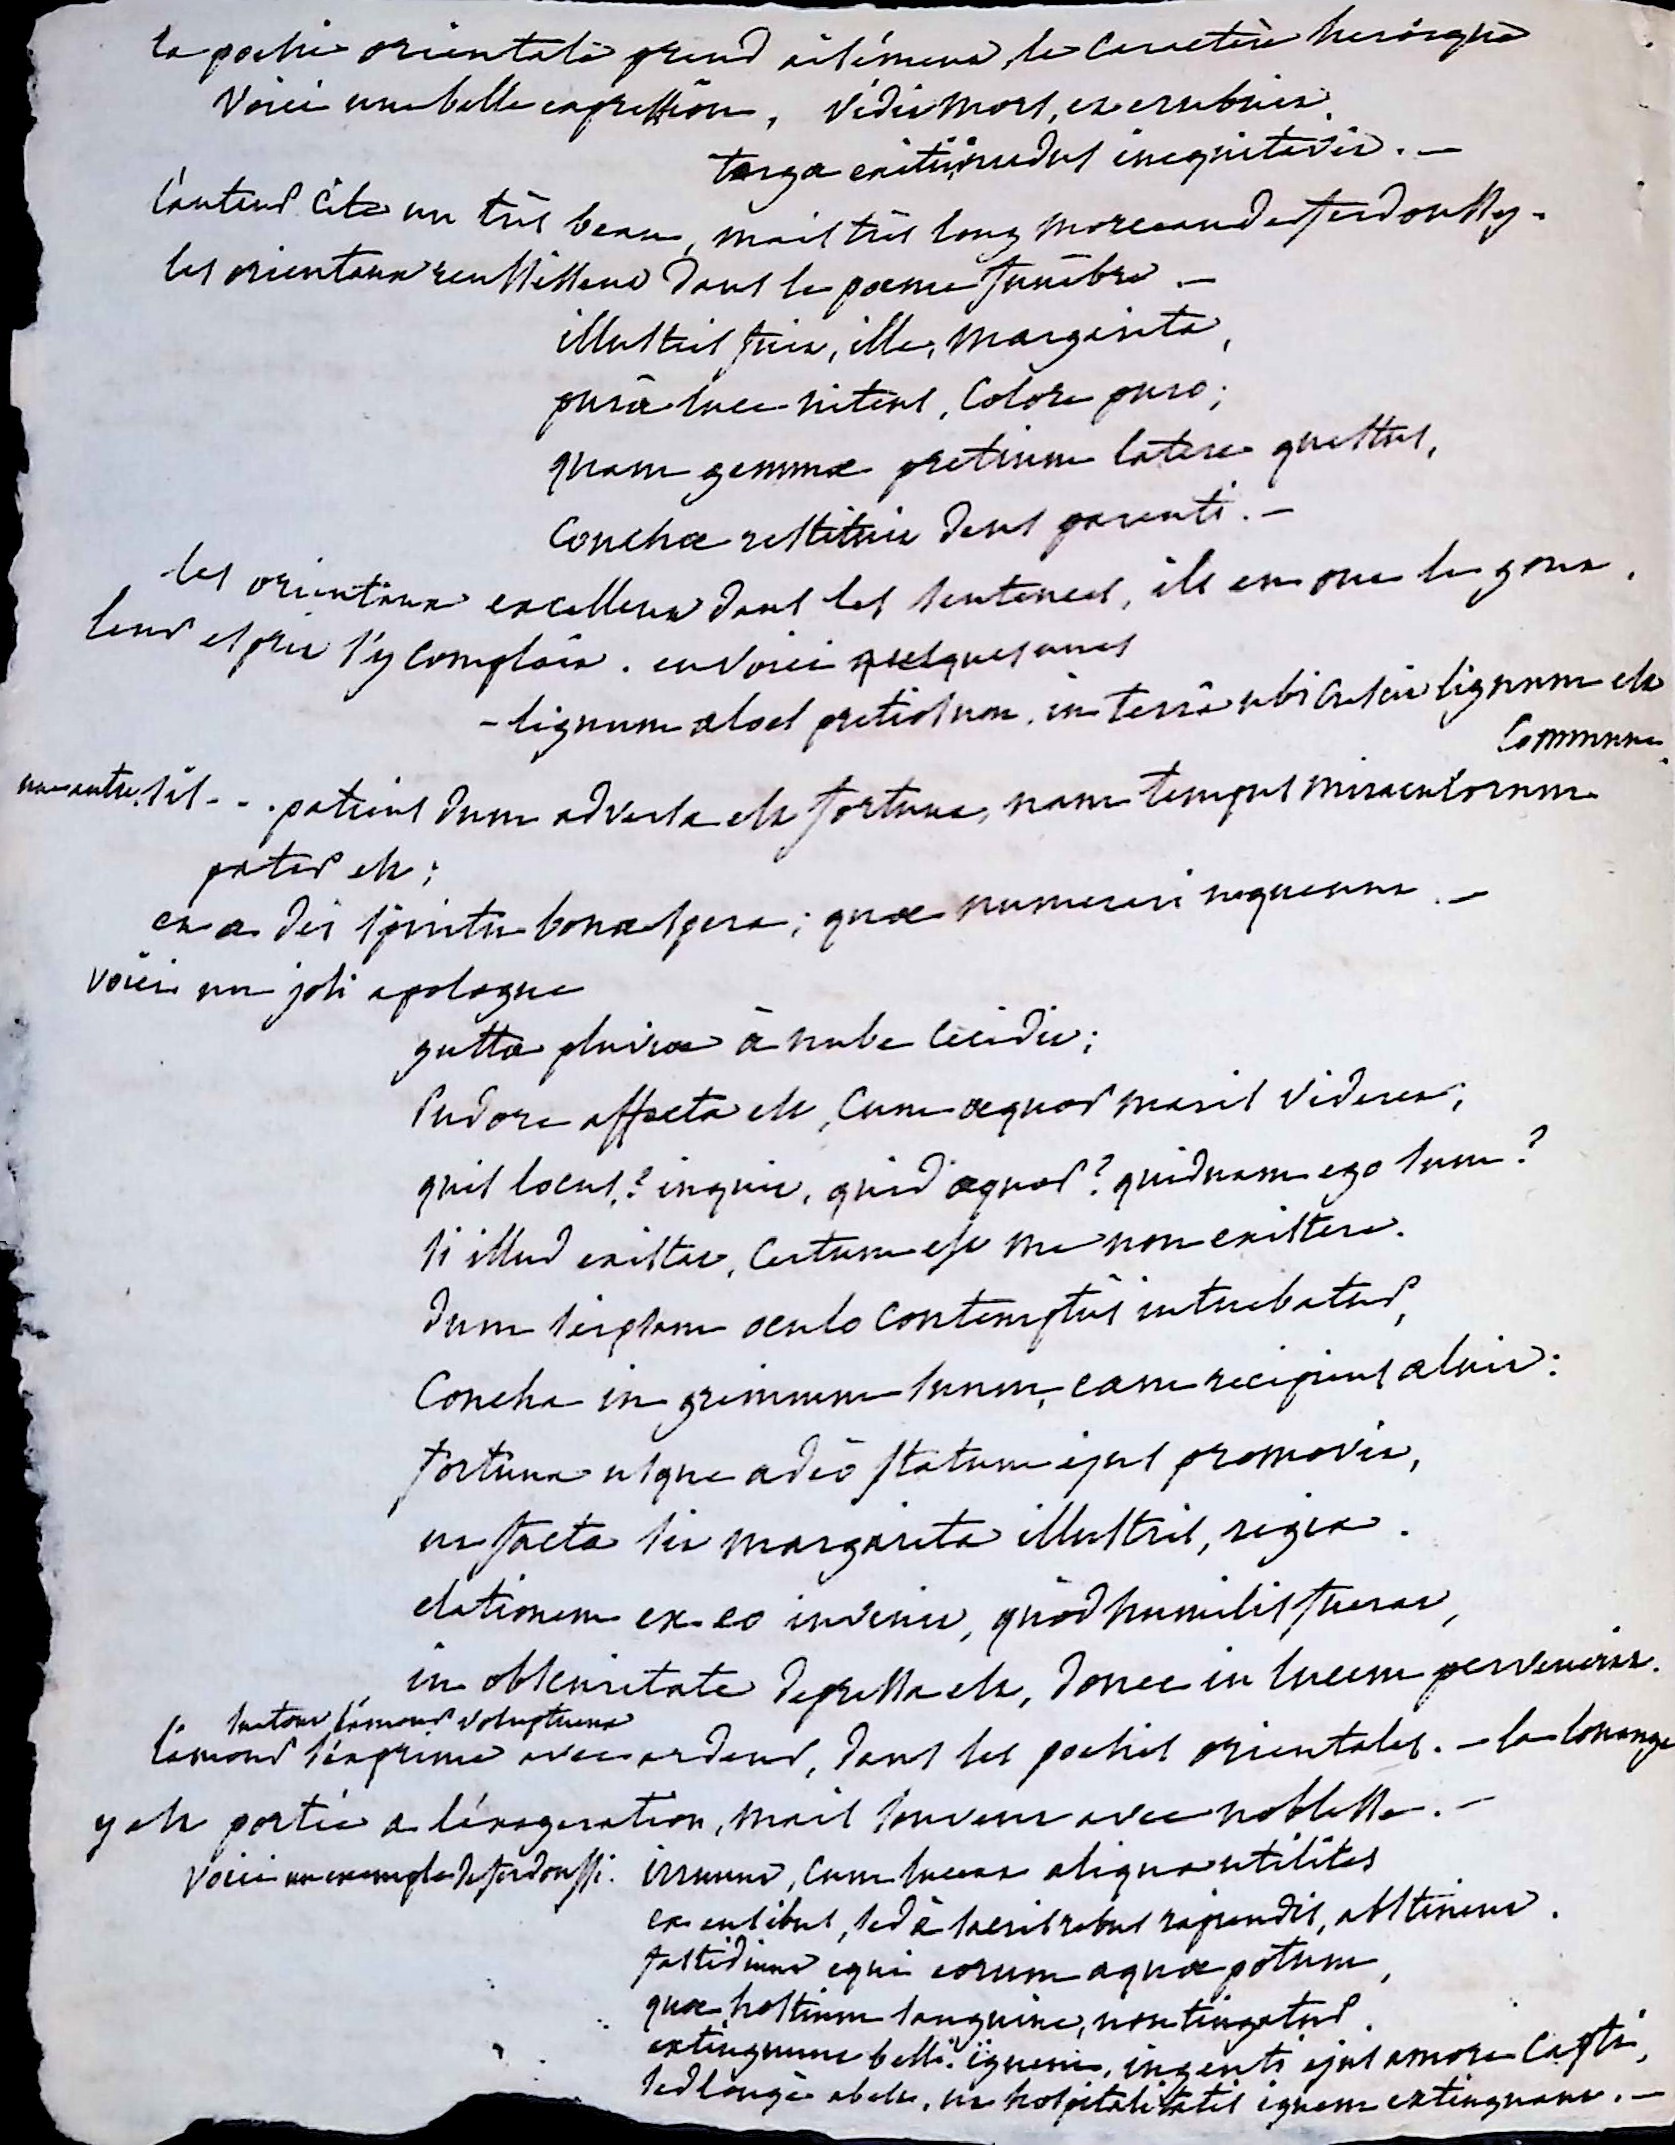 la poësie orientale prend aisément le caractère héroïque
Voici une belle expression, vidit mors, et erubuit.
terga exitii nudus inequitavit. —
l'auteur cite un très beau, mais très long morceau de ferdoussy.
les orientaux reussissent dans le poeme funèbre. —
illustris fuit, ille, margarita,
purâ luce nitens, colore puro;
quam gemmæ pretium latere questus,
Conchæ restituit deus parenti. —
les orientaux excellent dans les sentences, ils en ont le gout,
leur esprit s'y complait. en voici quelques unes
- lignum aloes pretiosum, in terrâ ubi crescit lignum est
commune.
une autre. sis - - . patiens dum adversa est fortuna, nam tempus miraculorum
pater est;
et a dei spiritu bona spera; quæ numerari nequeunt. —
Voici un joli apologue
gutta pluviæ à nube cecidit;
Pudore affecta est, cum æquor maris videret;
quis locus,? inquit, quid æquor? quidnam ego sum?
si illud existat, certum est me non existere.
dum seipsam oculo contemptûs intuebatur,
Concha in gremium suum, eam recipiens aluit:
fortuna usque adeò statum ejus promovit,
ut facta sit margarita illustris, regia.
elationem ex eo invenit, quòd humilis fuerat,
in obscuritate depressa est, donec in lucem pervenerat.
surtout l'amour voluptueux
l'amour s'exprime avec ardeur, dans les poësies orientales. — la louange
y est portée a l'éxageration, mais souvent avec noblesse. —
Voici un exemple de ferdoussi. irruunt, cum luceat aliqua utilitas
ex ensibus, sed à sacris rebus rapiendis, abstinent.
fastidiunt equi eorum aquæ potum,
quæ, hostium sanguine, non tingatur.
extinguunt belli ignem, ingenti ejus amore capti,
sed longè abest, ut hospitalitatis ignem extinguant. —